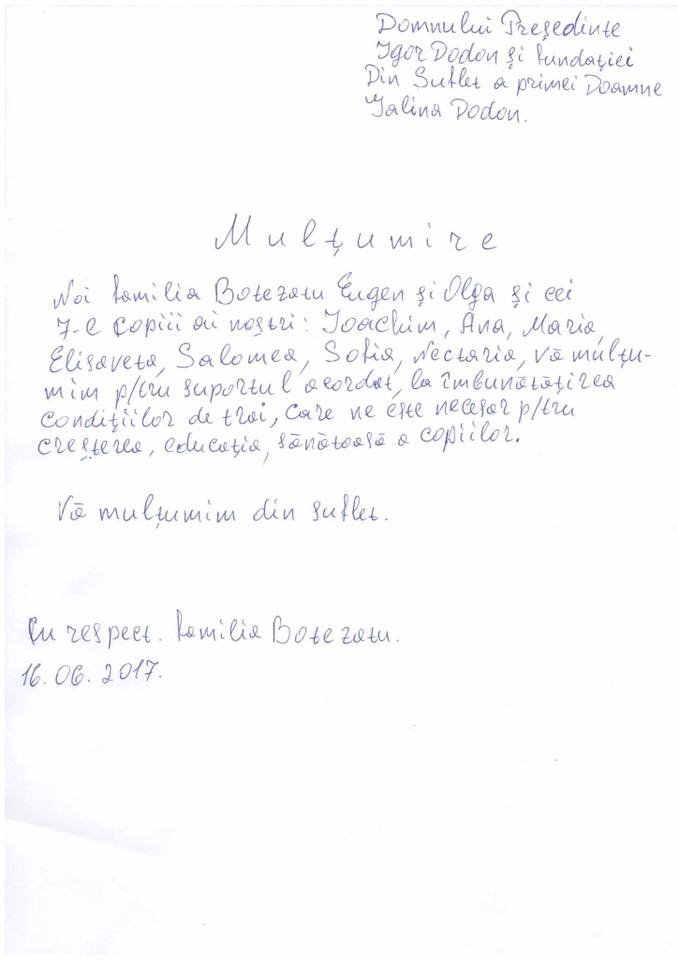 Domnului Președinte
Igor Dodon și Fundației
Din Suflet a primei Doamne
Galina Dodon.
Mulțumire
Noi familia Botezatu Eugen și Olga și cei
7-e copiii ai noștri: Ioachim, Ana, Maria,
Elisaveta, Salomea, Sofia, Nectaria, vă mulțu-
mim p/tru suportul acordat, la îmbunătățirea
condițiilor de trai, care ne este necesar p/tru
creșterea, educația, sănătoasă a copiilor.
Vă mulțumim din suflet.
Cu respect. familia Botezatu.
16.06.2017.